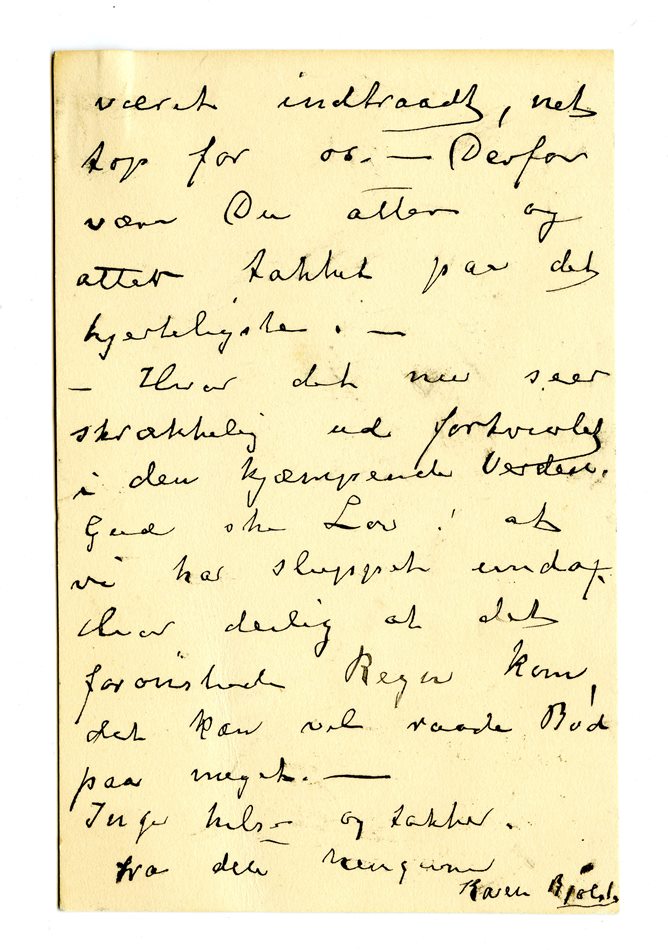 været indtraadt, net
top for os. — Derfor
være Du atter og
atter takket paa det
hjerteligste. —
— Hvor det nu seer
skrækkelig ud fortvivlet
i den kjæmpende Verden.
Gud ske Lov! at
vi har sluppet undaf.
Hvor deilig at det
forønskede Regn kom,
det kan vel raade Bod
paa meget. —
Inger hilser og takker.
fra din hengivne
Karen